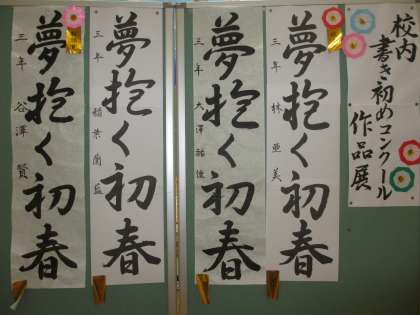 校内
書き初めコンクール
作品展
夢抱く初春
三年 林 亜美
夢抱く初春
三年 大澤
夢抱く初春
三年 稲葉蘭
夢抱く初春
三年 谷澤 賢